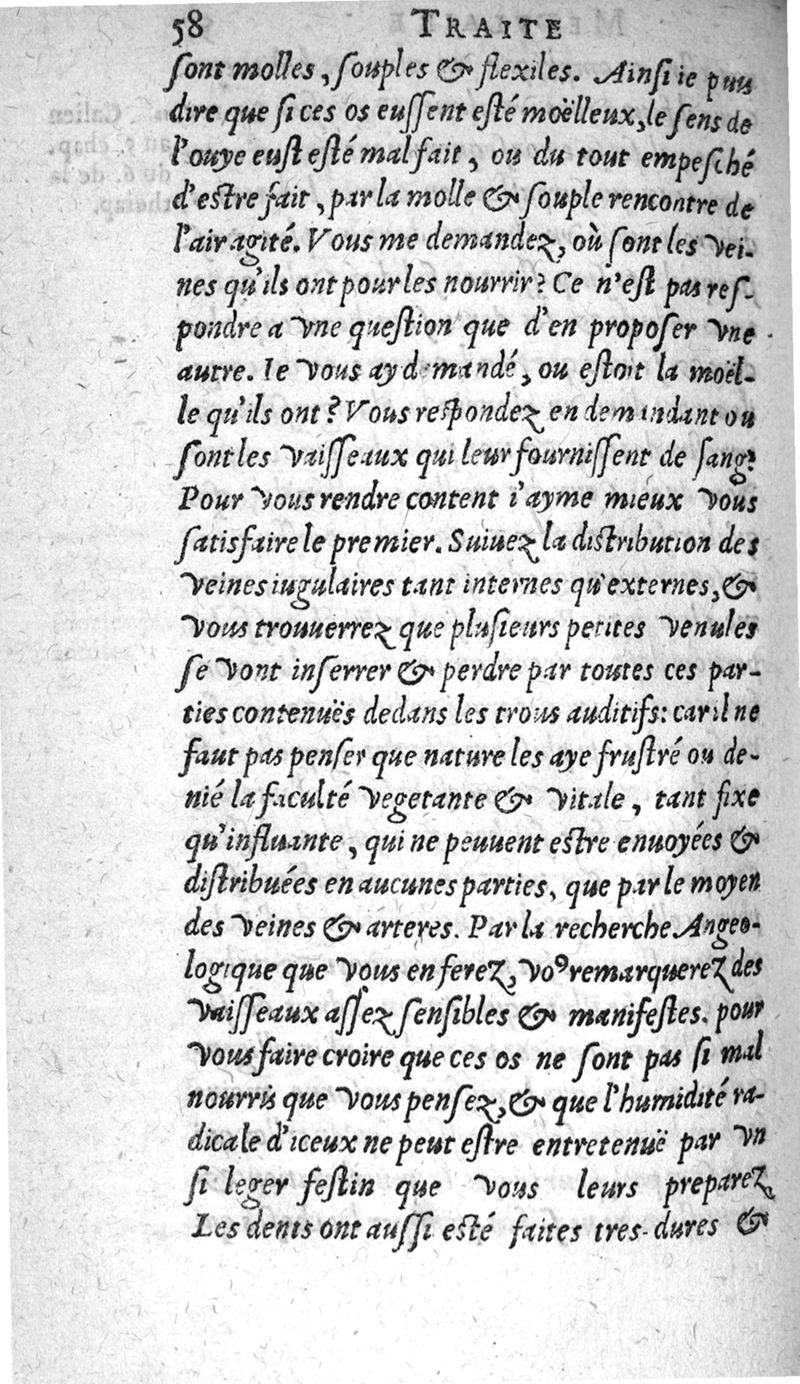 58 TRAITE
ſont molles, ſouples & flexiles. Ainſi ie puis
dire que ſi ces os euſſent eſté moëlleux, le ſens de
l'ouye euſt eſté mal fait, ou du tout empeſché
d'eſtre fait, par la molle & ſouple rencontre de
l'air agité. Vous me demandez, où ſont les vei-
nes qu'ils ont pour les nourrir? Ce n'eſt pas reſ-
pondre a vne queſtion que d'en propoſer vne
autre. Ie vous ay demandé, ou eſtoit la moël-
le qu'ils ont? Vous reſpondez en demandant ou
ſont les vaiſſeaux qui leur fourniſſent de ſang?
Pour vous rendre content i'ayme mieux vous
ſatisfaire le premier. Suiuez la diſtribution des
veines iugulaires tant internes qu'externes, &
vous trouuerrez que pluſieurs petites venules
ſe vont inſerrer & perdre par toutes ces par-
ties contenuës dedans les trous auditifs: car il ne
faut pas penſer que nature les aye fruſtré ou de-
nié la faculté vegetante & vitale, tant fixe
qu'influante, qui ne peuuent eſtre enuoyées &
diſtribuées en aucunes parties, que par le moyen
des veines & arteres. Par la recherche Angeo-
logique que vous en ferez, voꝰ remarquerez des
vaiſſeaux aſſez ſenſibles & manifeſtes. pour
vous faire croire que ces os ne ſont pas ſi mal
nourris que vous penſez, & que l'humidité ra-
dicale d'iceux ne peut eſtre entretenuë par vn
ſi leger feſtin que vous leurs preparez
Les dents ont auſſi eſté faites tres-dures &